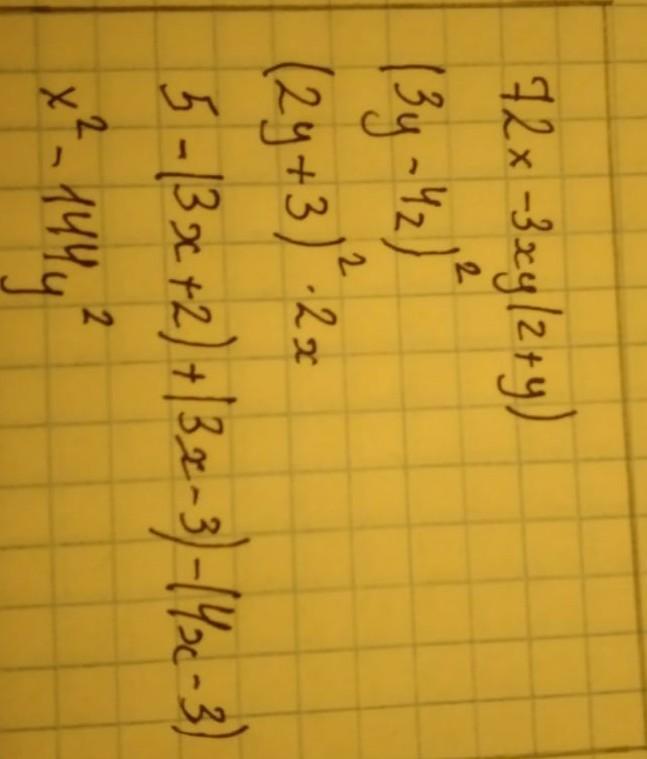 72x - 3xy(z + y)
(3y - 4z)²
(2y + 3)² · 2x
5 - (3x + 2) + (3x - 3) - (4x - 3)
x² - 144y²